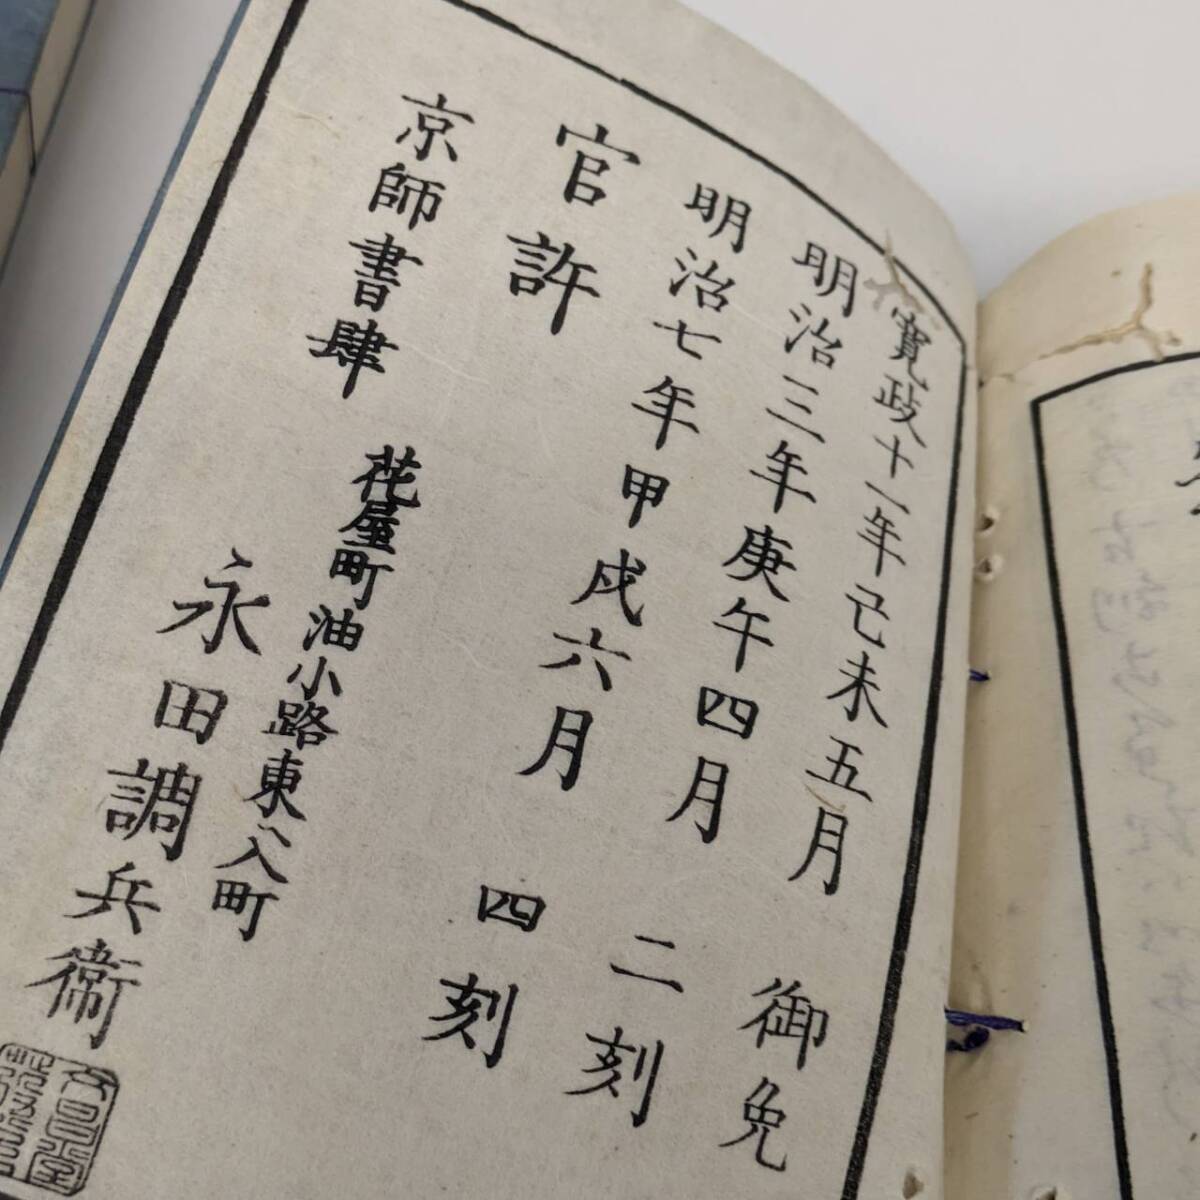 寛政十一年己未五月 御免
明治三年庚午四月 二刻
明治七年甲戌六月 四刻
官許
京師書肆 花屋町油小路東ヘ入町
永田調兵衛